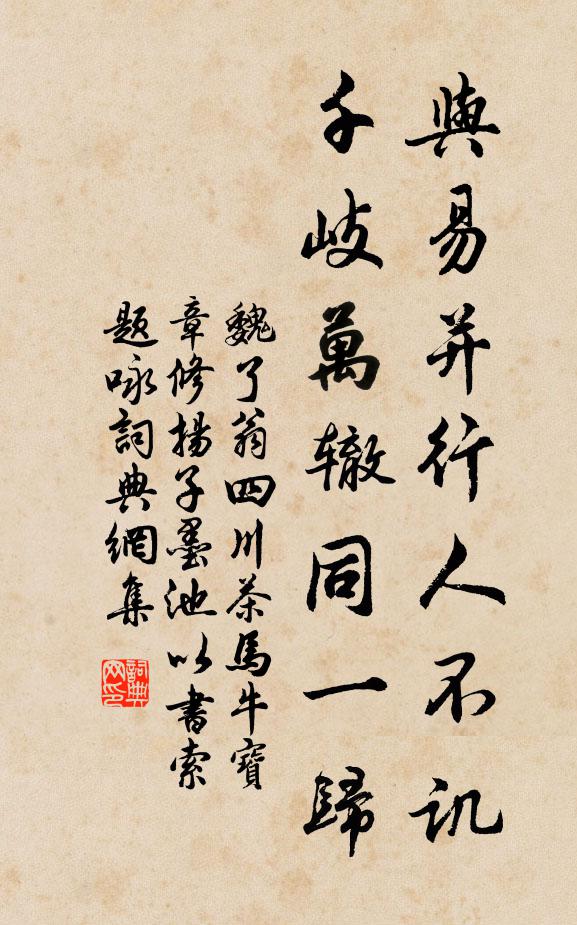 與易并行人不訊
千岐萬辙同一歸
魏了翁四川茶馬牛寶
章修揚子墨池以書索
題咏詞典網集
詞典网印